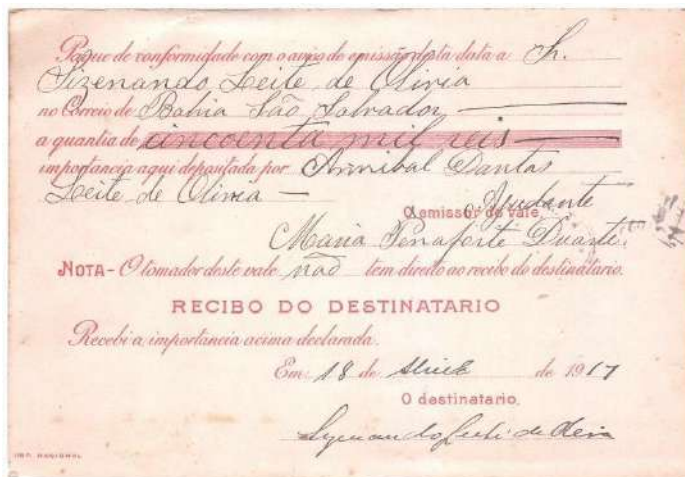 Pague de conformidade com o aviso de emissão desta data a Sr.
Sizenando Leite de Oliveira
no Correio de Bahia São Salvador
a quantia de cincoenta mil reis
importancia aqui depositada por Annibal Dantas
Leite de Oliveira
Ajudante
O emissor do vale,
Maria Penaforte Duarte.
NOTA - O tomador deste vale não tem direito ao recibo do destinatario.
RECIBO DO DESTINATARIO
Recebi a importancia acima declarada.
Em 18 de de 1917
O destinatario,
IMP. NACIONAL